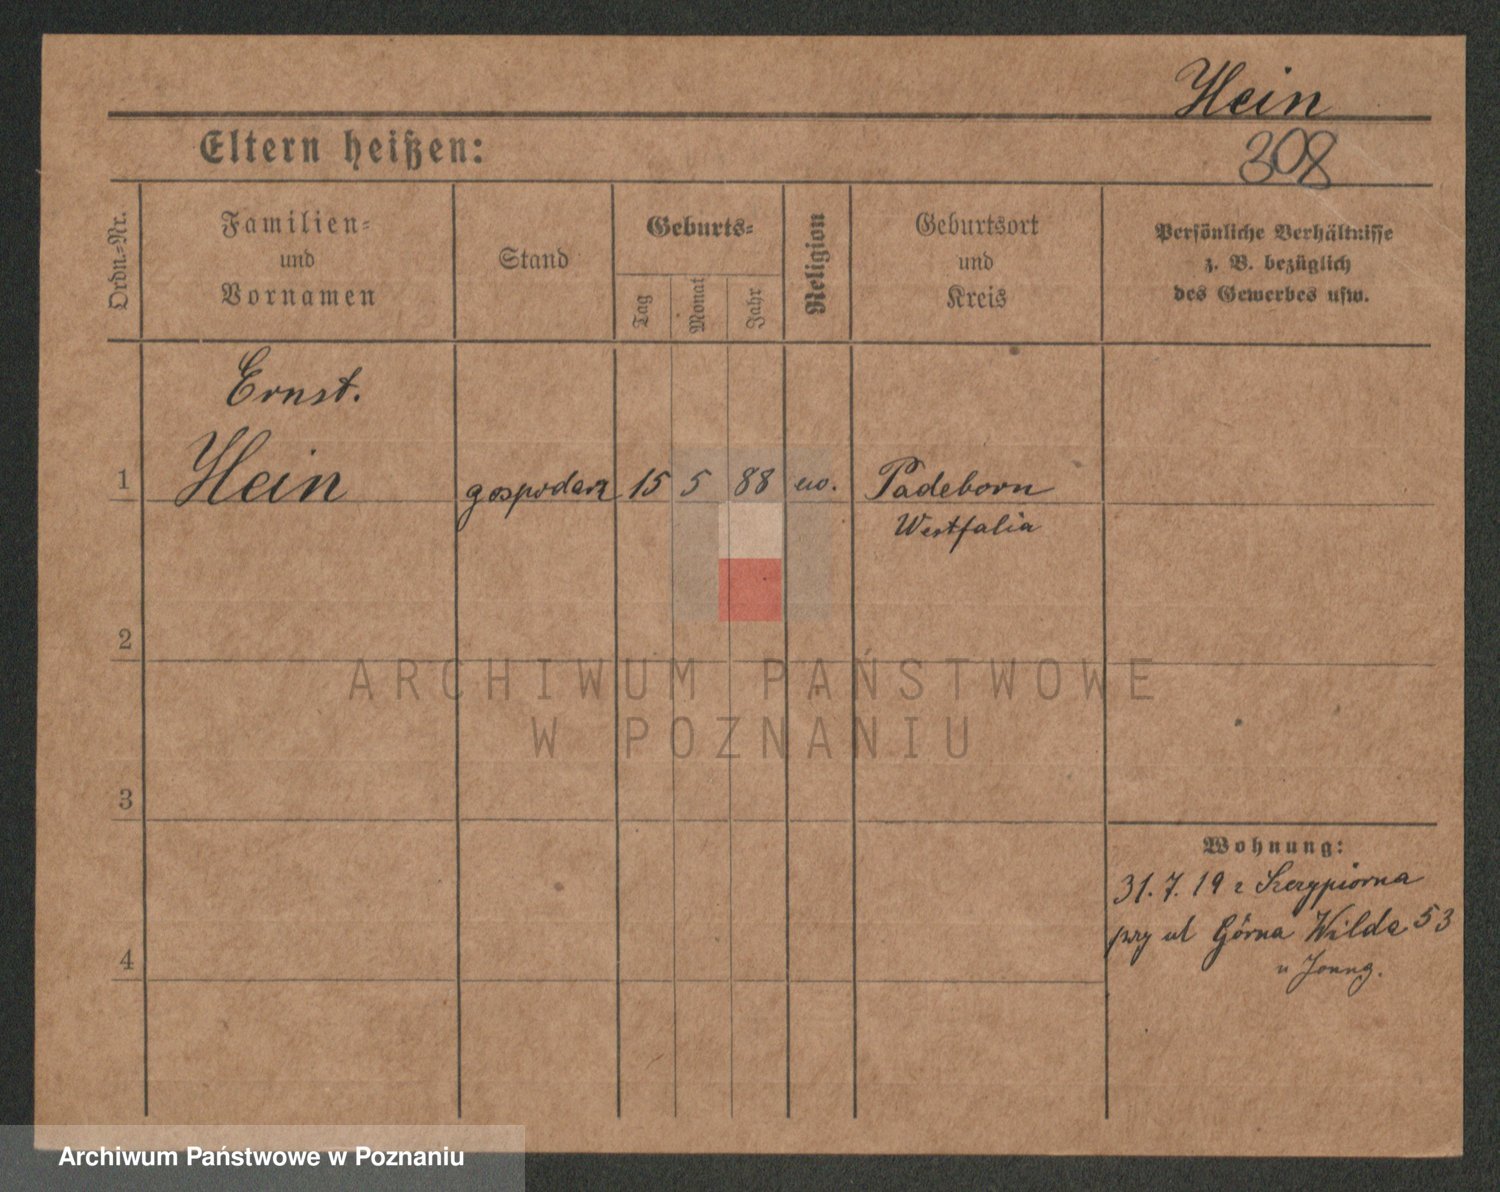 Hein
308
Eltern heißen:
Ordn.=Nr.
Familien=
und
Vornamen
Stand
Geburts=
Tag
Monat
Jahr
Religion
Geburtsort
und
Kreis
Persönliche Verhältnisse
z. B. bezüglich
des Gewerbes usw.
Ernst.
1 Hein gospodarz 15 5 88 ew. Padeborn
Westfalia
2
3
4
Wohnung:
31.7.19 z Szczypiorna
przy ul Górna Wilda 53
u Joung.
ARCHIWUM PAŃSTWOWE
W POZNANIU
Archiwum Państwowe w Poznaniu